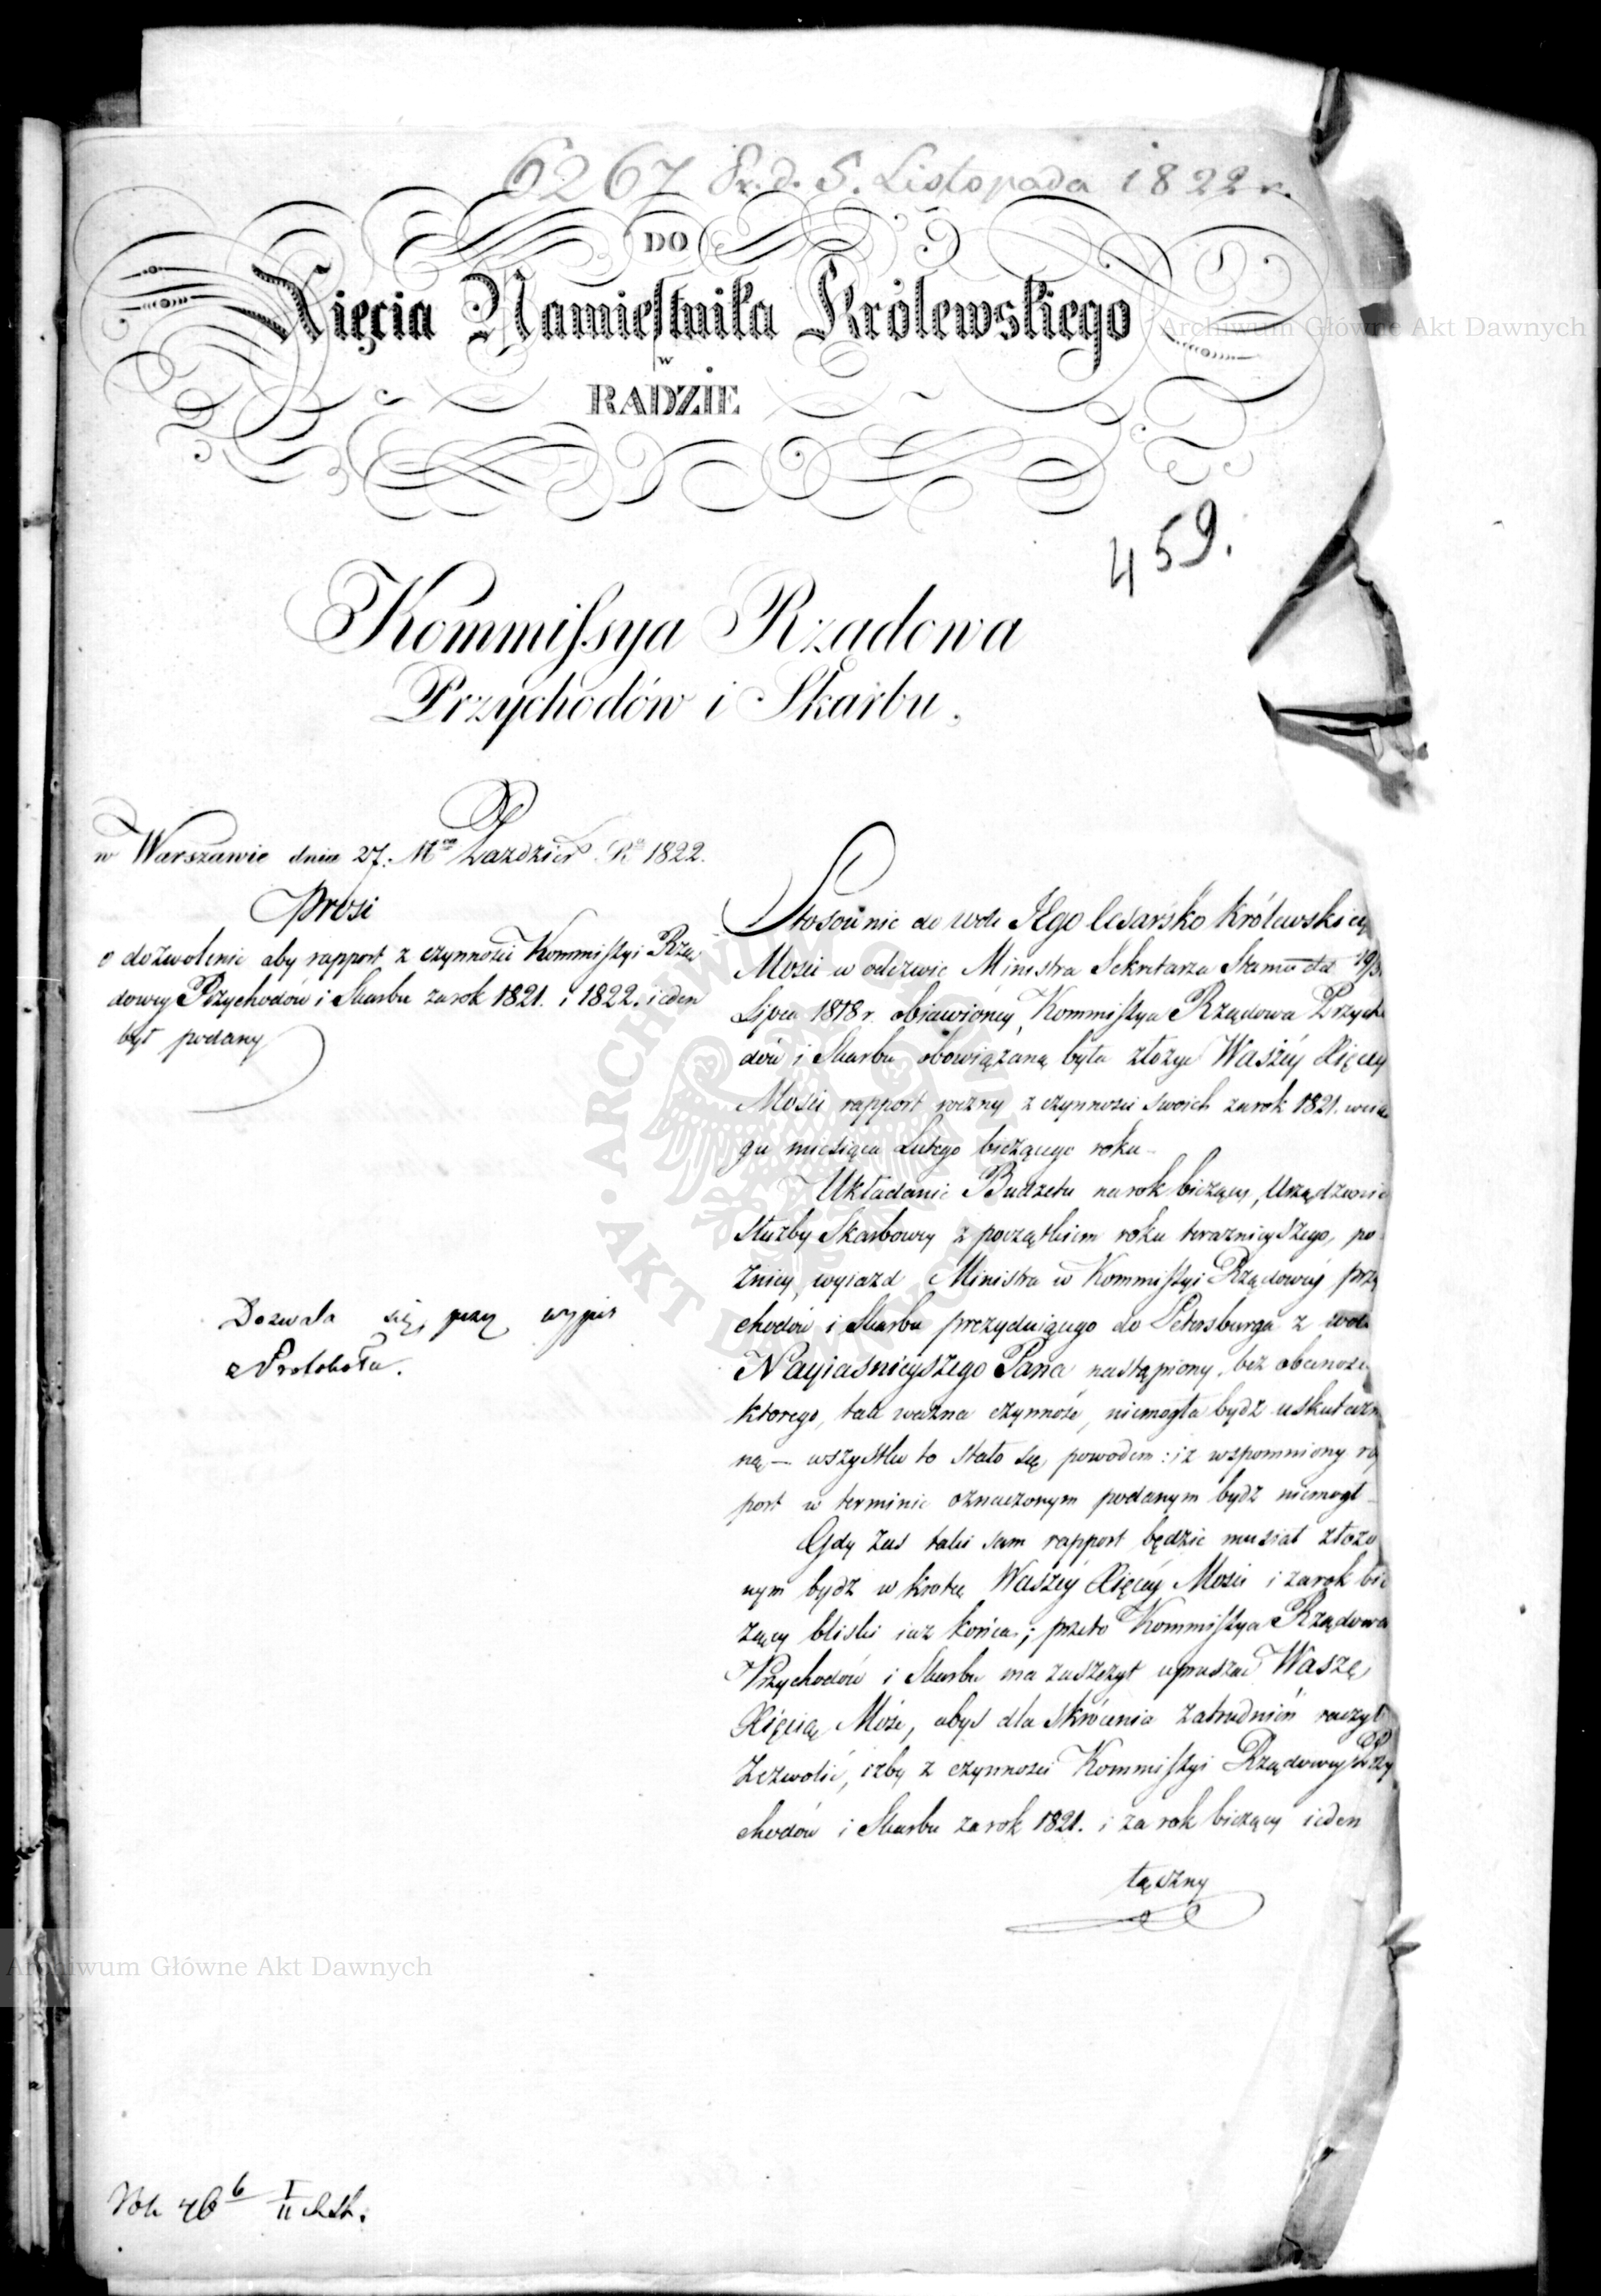 6267 Pr. d. 5. Listopada 1822 r.
DO
Xięcia Namiestnika Królewskiego
w
RADZIE
459.
Kommissya Rządowa
Przychodów i Skarbu,
w Warszawie dnia 27. Mca Paździer. Ru 1822.
Prosi
o dozwolenie aby rapport z czynności Kommissyi Rzą
dowey Przychodów i Skarbu za rok 1821. i 1822. ieden
był podany
Dozwala się, przez wypis
z Protokołu.
Stosownie do woli JEgo Cesarsko Królewskiey
Mości w odezwie Ministra Sekretarza Stanu dtd 19/31
Lipca 1818 r. obiawioney, Kommissya Rządowa Przycho
dów i Skarbu obowiązaną była złożyć Waszéy Xięcéy
Mości rapport roczny z czynności swoich za rok 1821. w cią
gu miesiąca Lutego bieżącego roku
Układanie Budżetu na rok bieżący, Urządzenie
służby Skarbowey z początkiem roku teraznieyszego, po
źniey wyiazd Ministra w Kommissyi Rządowéy przy
chodów i Skarbu prezyduiącego do Petersburga z woli
Nayiaśnieyszego Pana nastąpiony, bez obecności
którego, tak ważna czynność, niemogła bydź uskutecznio
ną – wszystko to stało się powodem: iż wspomniony rap
port w terminie oznaczonym podanym bydź niemogł
Gdy zaś taki sam rapport będzie musiał złożo
nym bydź w krotce Waszéy Xięcéy Mości i za rok bie
żący bliski iuż końca; przeto Kommissya Rządowa
Przychodów i Skarbu ma zaszczyt upraszać Waszą
Xięcią Mość, abyś dla skrócenia zatrudnień raczył
Zezwolić, iżby z czynności Kommissyi Rządowey Przy
chodów i Skarbu za rok 1821. i za rok bieżący ieden
łączny
Vol. 46 b I II
Archiwum Główne Akt Dawnych
Archiwum Główne Akt Dawnych